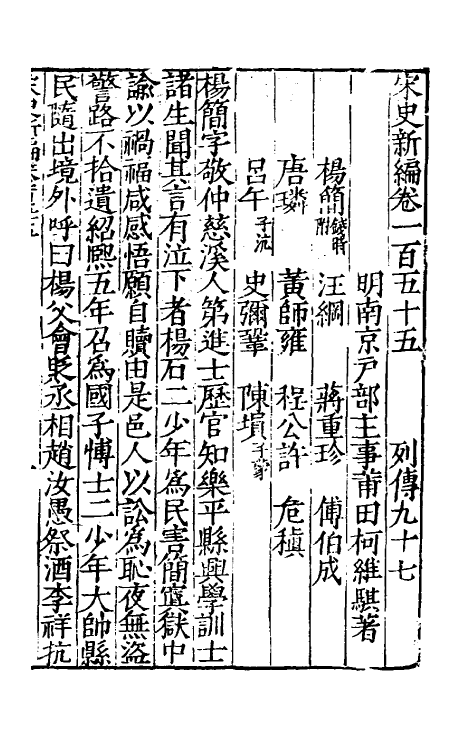 宋史新編卷一百五十五　列傳九十七
明南京戶部主事莆田柯維騏著
楊簡錢時附　汪綱　蔣重珍　傅伯成
唐璘　黃師雍　程公許　危稹
呂午子沆　史彌鞏　陳塤子蒙
楊簡字敬仲慈溪人第進士歷官知樂平縣興學訓士
諸生聞其言有泣下者楊石二少年為民害簡寘獄中
諭以禍福咸感悟願自贖由是邑人以訟為恥夜無盜
警路不拾遺紹熙五年召為國子博士二少年大帥縣
民隨出境外呼曰楊父會𣃁丞相趙汝愚祭酒李祥抗